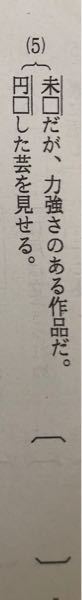 (5)
未□だが、力強さのある作品だ。
円□した芸を見せる。